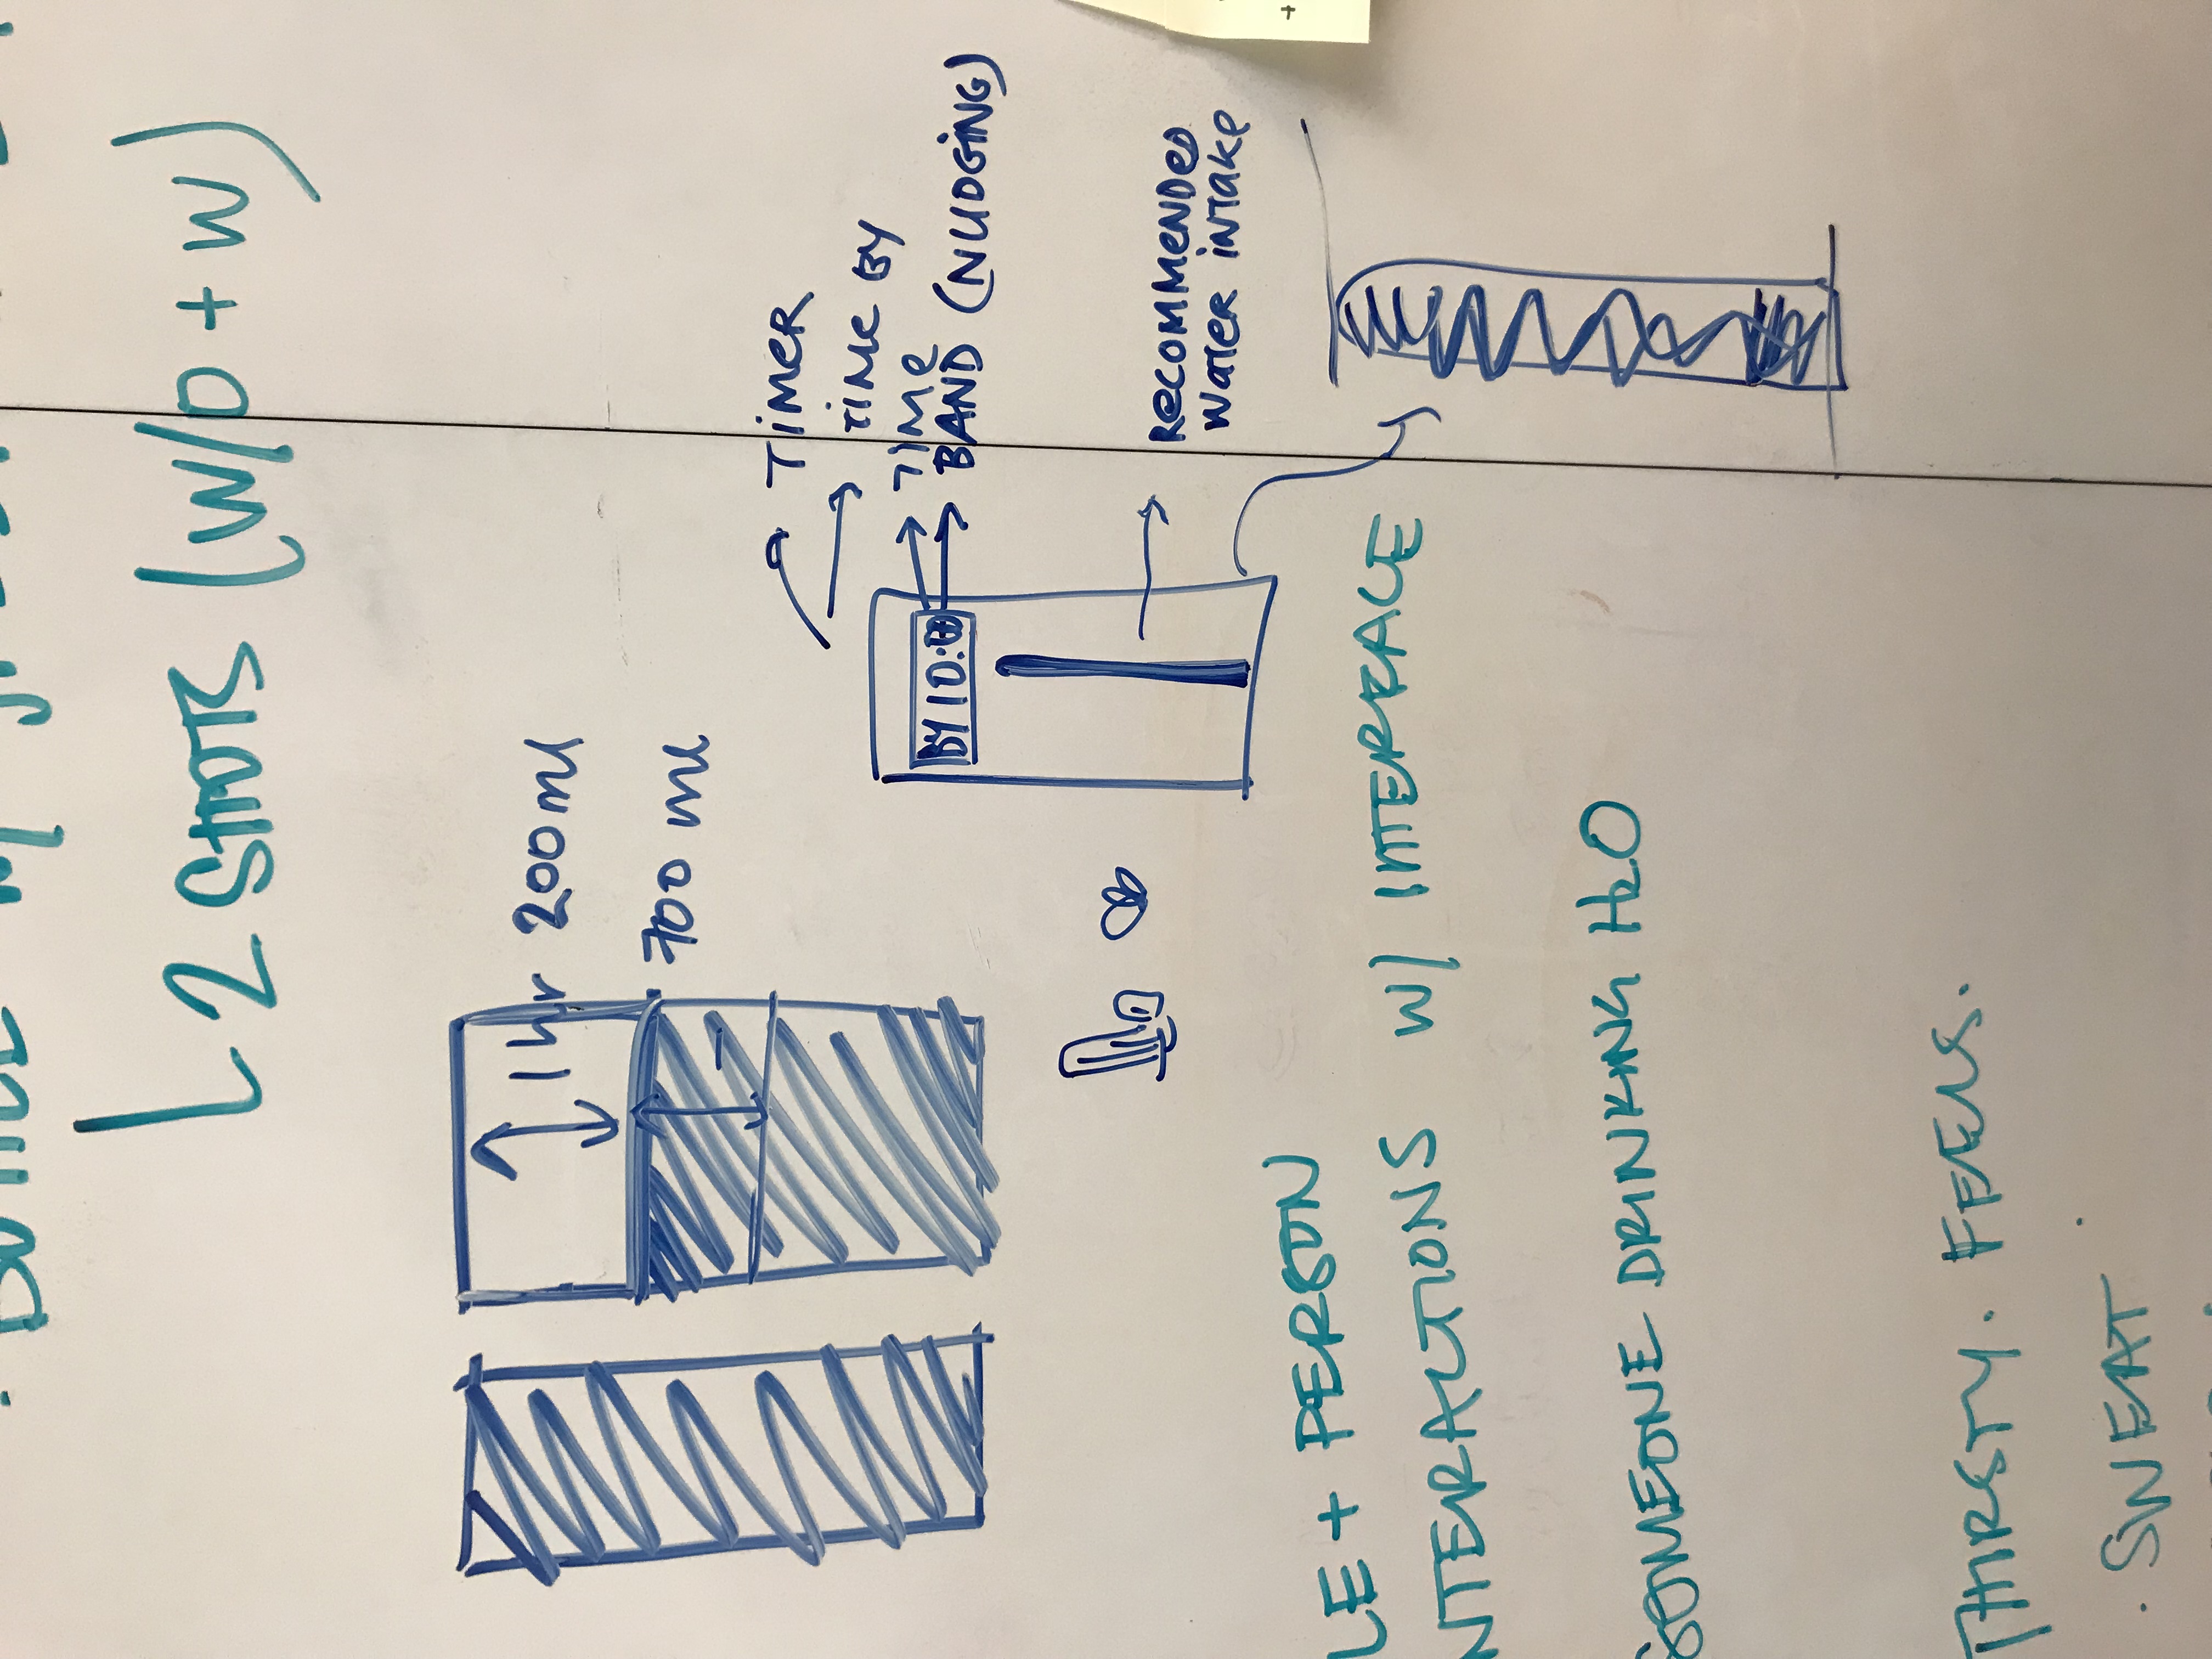 2 SHOTS (W/O + W)
1 hr 200 ml
700 ml
TIMER
TIME BY
TIME
BAND (NUDGING)
BY 10:00
RECOMMENDED
WATER INTAKE
LE + PERSON
NTERACTIONS W/ INTERFACE
SOMEONE DRINKING H2O
THIRSTY. FEELS.
· SWEAT